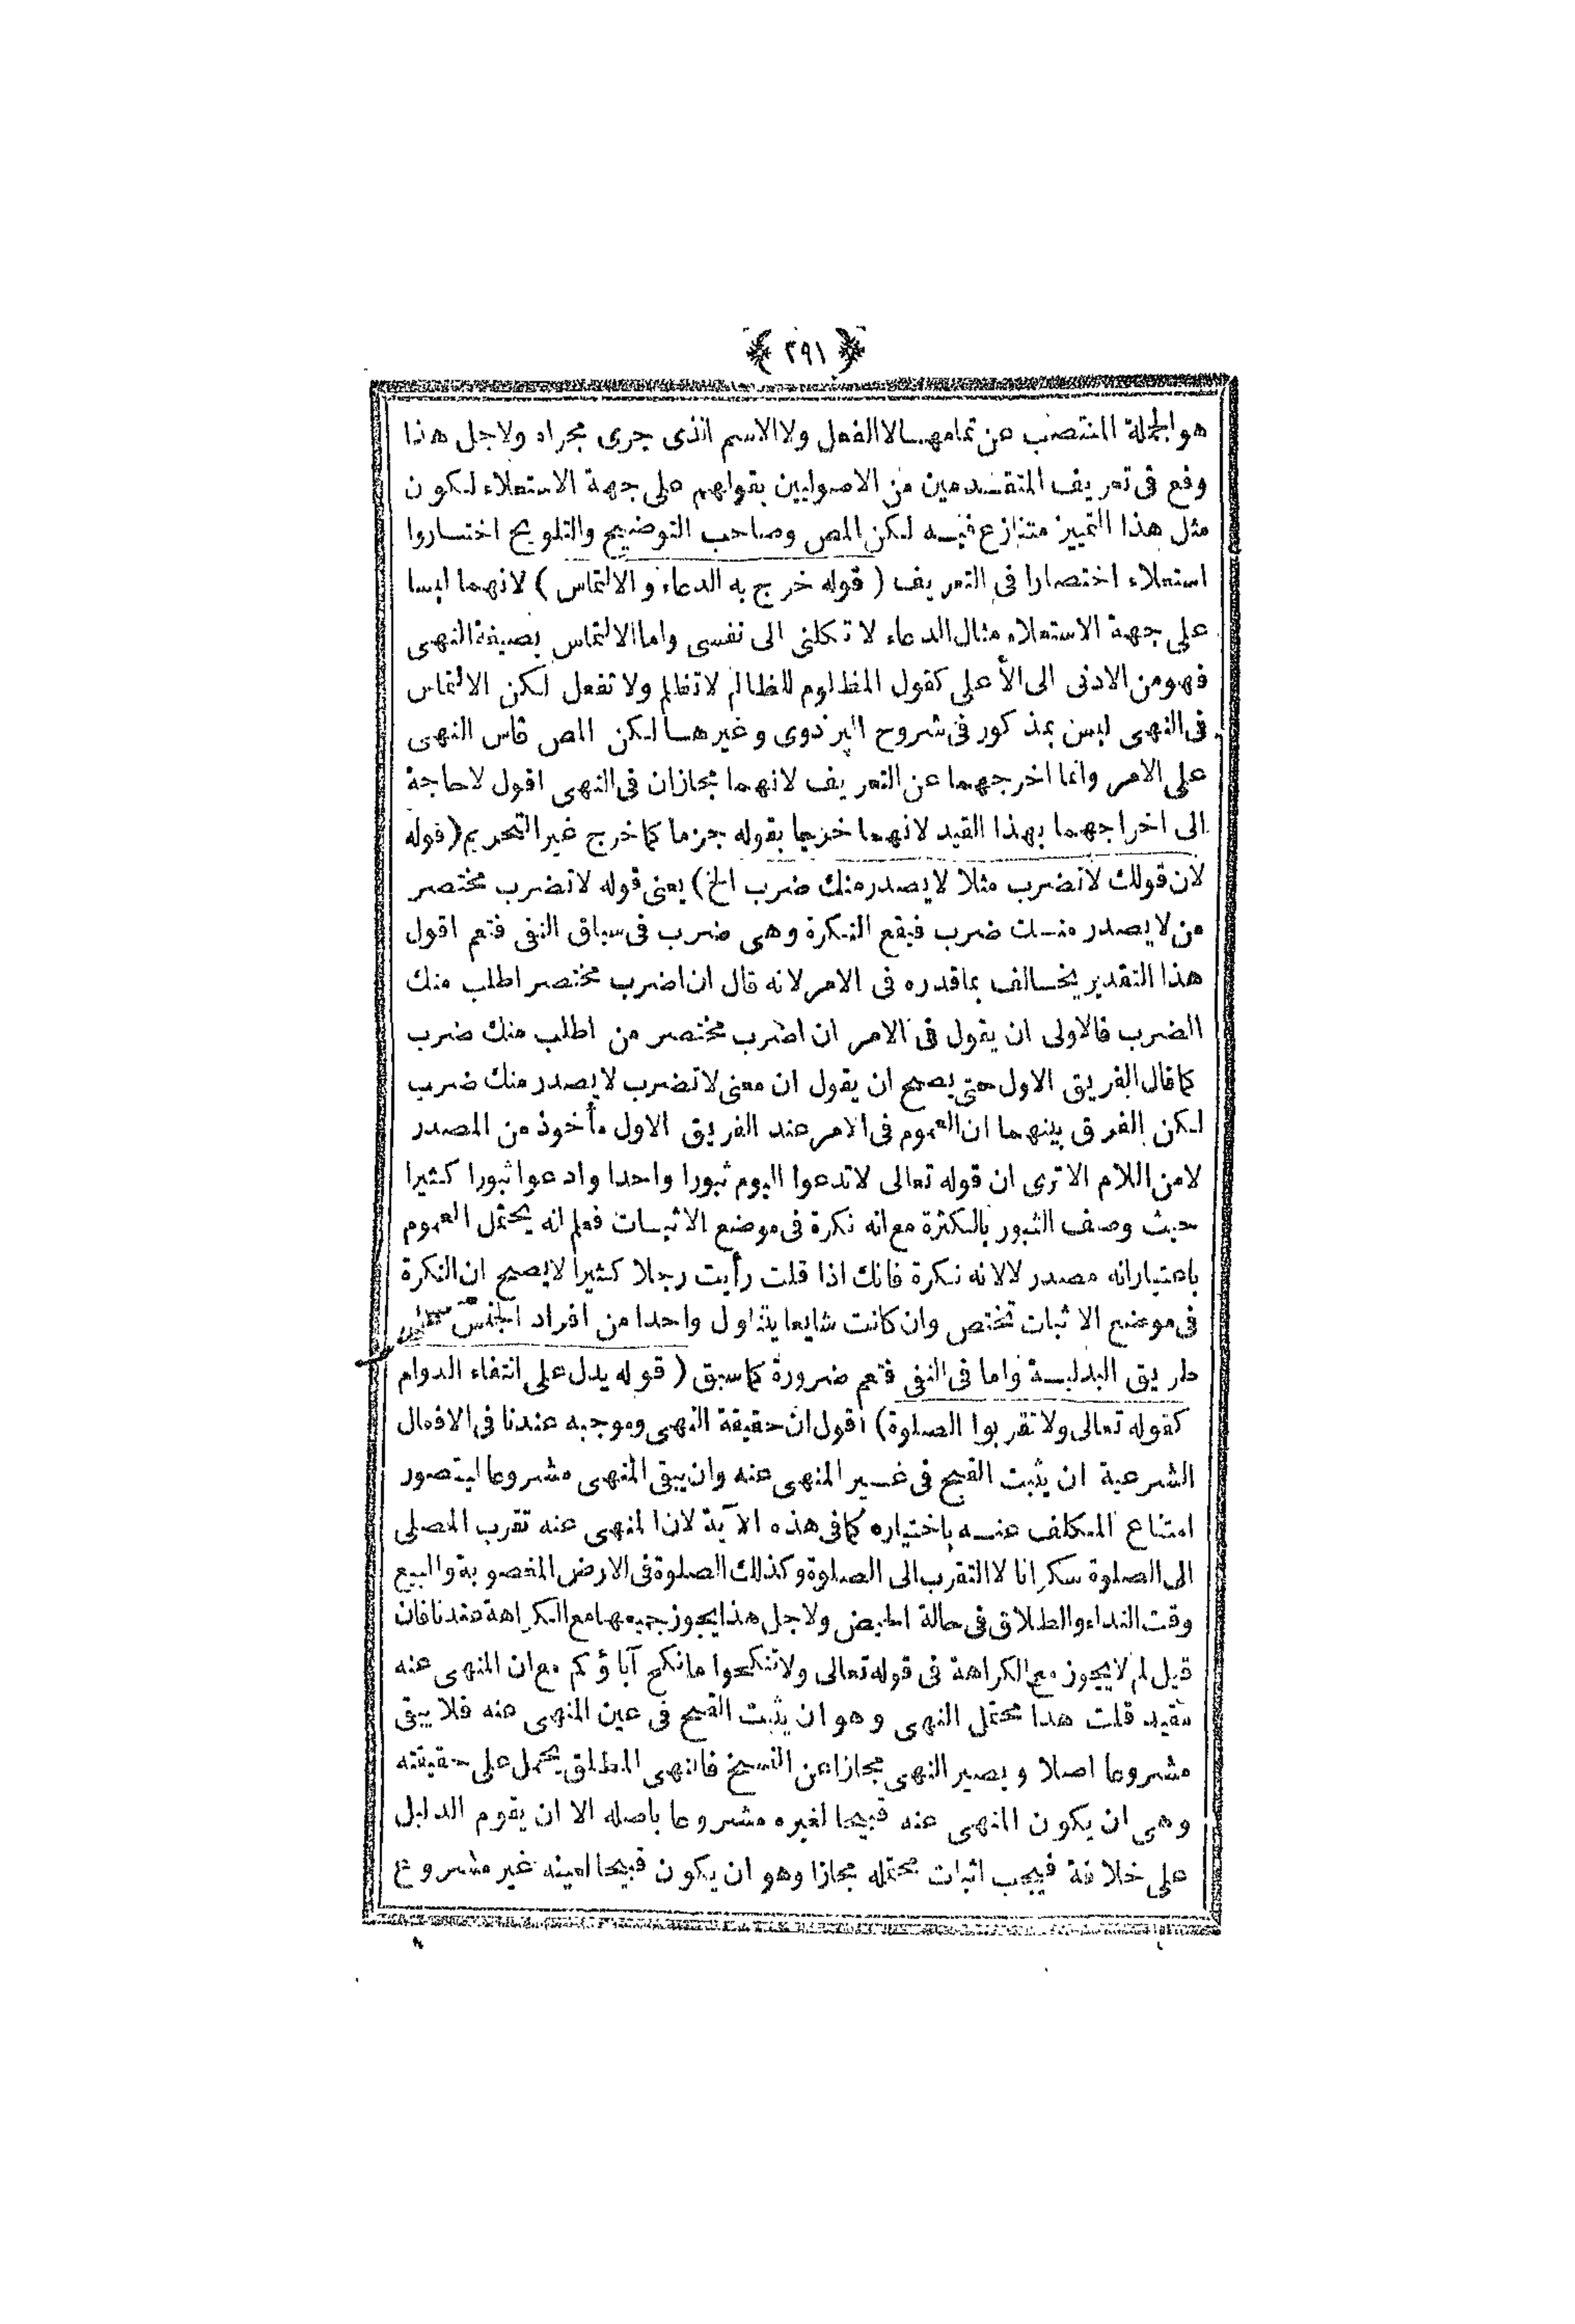 ﴿ ٣٩١ ﴾
هو الجملة المنتصب عن تمامها لا الفعل ولا الاسم الذى جرى مجراه ولاجل هذا
وقع فى تعريف المتقدمين من الاصوليين بقولهم على جهة الاستعلاء لكون
مثل هذا التمييز متنازع فيه لكن المص وصاحب التوضيح والتلويح اختاروا
استعلاء اختصارا فى التعريف ( قوله خرج به الدعاء والالتماس ) لانهما ليسا
على جهة الاستعلاء مثال الدعاء لا تكلنى الى نفسى واما الالتماس بصيغة النهى
فهو من الادنى الى الأعلى كقول المظلوم للظالم لا تظلم ولا تفعل لكن الالتماس
فى النهى ليس بمذكور فى شروح البزدوى وغيرها لكن المص قاس النهى
على الامر وانما اخرجهما عن التعريف لانهما مجازان فى النهى اقول لا حاجة
الى اخراجهما بهذا القيد لانهما خرجا بقوله جزما كما خرج غير التحريم ( قوله
لان قولك لا تضرب مثلا لا يصدر منك ضرب الخ ) يعنى قوله لا تضرب مختصر
من لا يصدر منك ضرب فيقع النكرة وهى ضرب فى سياق النفى فتعم اقول
هذا التقدير يخالف بما قدره فى الامر لانه قال ان اضرب مختصر اطلب منك
الضرب فالاولى ان يقول فى الامر ان اضرب مختصر من اطلب منك ضرب
كما قال الفريق الاول حتى يصح ان يقول ان معنى لا تضرب لا يصدر منك ضرب
لكن الفرق بينهما ان العموم فى الامر عند الفريق الاول مأخوذ من المصدر
لا من اللام الا ترى ان قوله تعالى لا تدعوا اليوم ثبورا واحدا وادعوا ثبورا كثيرا
حيث وصف الثبور بالكثرة مع انه نكرة فى موضع الاثبات فعلم انه يحتمل العموم
باعتبار انه مصدر لا لانه نكرة فانك اذا قلت رأيت رجلا كثيرا لا يصح ان النكرة
فى موضع الاثبات تختص وان كانت شايعا يتناول واحدا من افراد الجنس
طريق البدلية واما فى النفى فتعم ضرورة كما سبق ( قوله يدل على انتفاء الدوام
كقوله تعالى ولا تقربوا الصلوة ) اقول ان حقيقة النهى وموجبه عندنا فى الافعال
الشرعية ان يثبت القبح فى غير المنهى عنه وان يبقى المنهى مشروعا ليتصور
امتناع المكلف عنه باختياره كما فى هذه الآية لان المنهى عنه تقرب المصلى
الى الصلوة سكرانا لا التقرب الى الصلوة وكذلك الصلوة فى الارض المغصوبة والبيع
وقت النداء والطلاق فى حالة الحيض ولاجل هذا يجوز جميعها مع الكراهة عندنا فان
قيل لم لا يجوز مع الكراهة فى قوله تعالى ولا تنكحوا ما نكح آباؤكم مع ان المنهى عنه
مقيد قلت هذا محتمل النهى وهو ان يثبت القبح فى عين المنهى عنه فلا يبقى
مشروعا اصلا ويصير النهى مجازا عن النسخ فالنهى المطلق يحمل على حقيقته
وهى ان يكون المنهى عنه قبيحا لغيره مشروعا باصله الا ان يقوم الدليل
على خلافه فيجب اثبات محتمله مجازا وهو ان يكون قبيحا لعينه غير مشروع